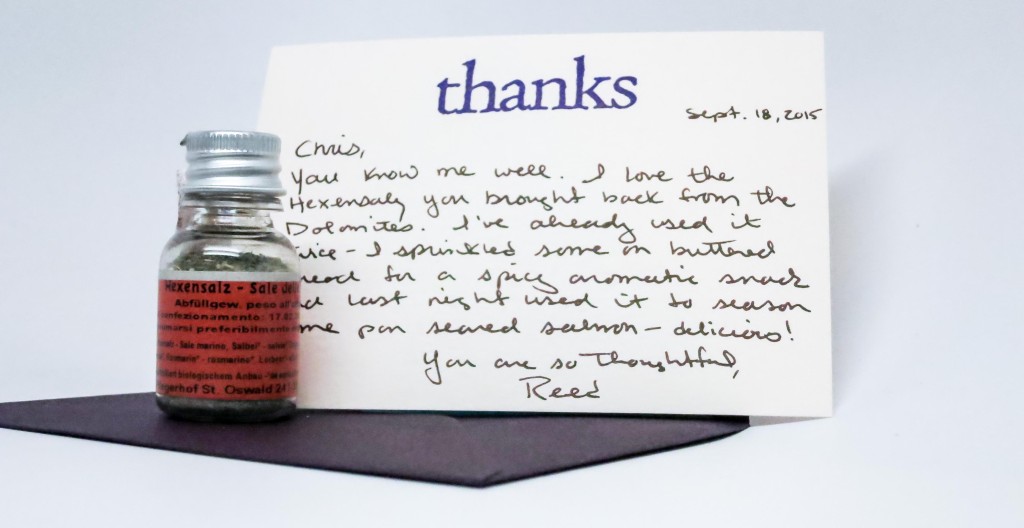 thanks
Sept. 18, 2015
Chris,
You know me well. I love the
Hexensalz you brought back from the
Dolomites. I've already used it
ice - I sprinkled some on buttered
read for a spicy aromatic snack
d last night used it to season
me pan seared salmon - delicious!
You are so thoughtful,
Reed
Hexensalz - Sale de
Abfüllgew. peso all'
confezionamento: 17.0
marsi preferibilmente
Sale marino, Salbei
rosmarino
biologischem Anbau
gerhof St. Oswald 24